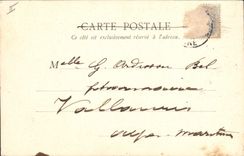 CARTE POSTALE
Ce côté est exclusivement réservé à l'adresse.
Melle G.
Pharmacie
Vallauris
Alpes Maritimes